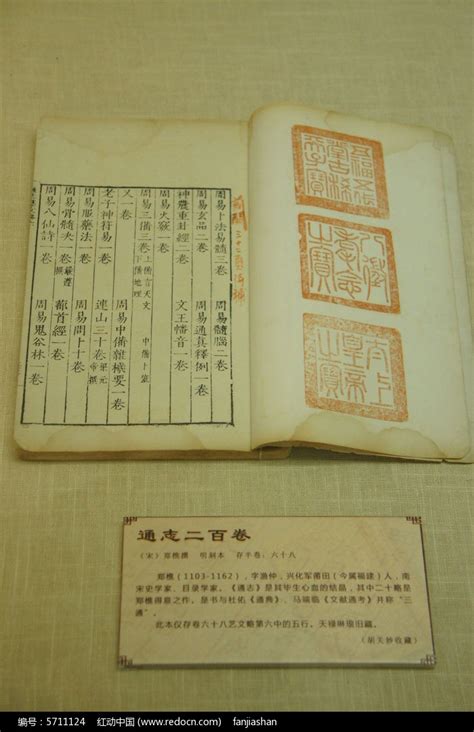 五福五代
堂古稀
天子寶
八徵
耄念
之寶
太上
皇帝
之寶
周易卜法易髓三卷 周易髓腦二卷
周易玄品二卷 周易通真釋例一卷
周易火竅一卷
神農重卦經二卷 文王幡音一卷
周易三備三卷 上備言天文 中備卜筮 下備地理
又一卷
老子神符易一卷 周易中備雜機要一卷
周易服藥法一卷 連山三十卷
周易骨髓決一卷 周易問十卷
周易八仙詩一卷 周易鬼谷林一卷
通志二百卷
(宋)郑樵撰 明刻本 存半卷:六十八
郑樵(1103-1162),字渔仲,兴化军莆田(今属福建)人,南
宋史学家、目录学家。《通志》是其毕生心血的结晶,其中二十略是
郑樵得意之作。是书与杜佑《通典》、马端临《文献通考》并称“三
通”。
此本仅存卷六十八艺文略第六中的五行。天禄琳琅旧藏。
(胡关妙收藏)
编号:5711124 红动中国 (www.redocn.com) fanjiashan